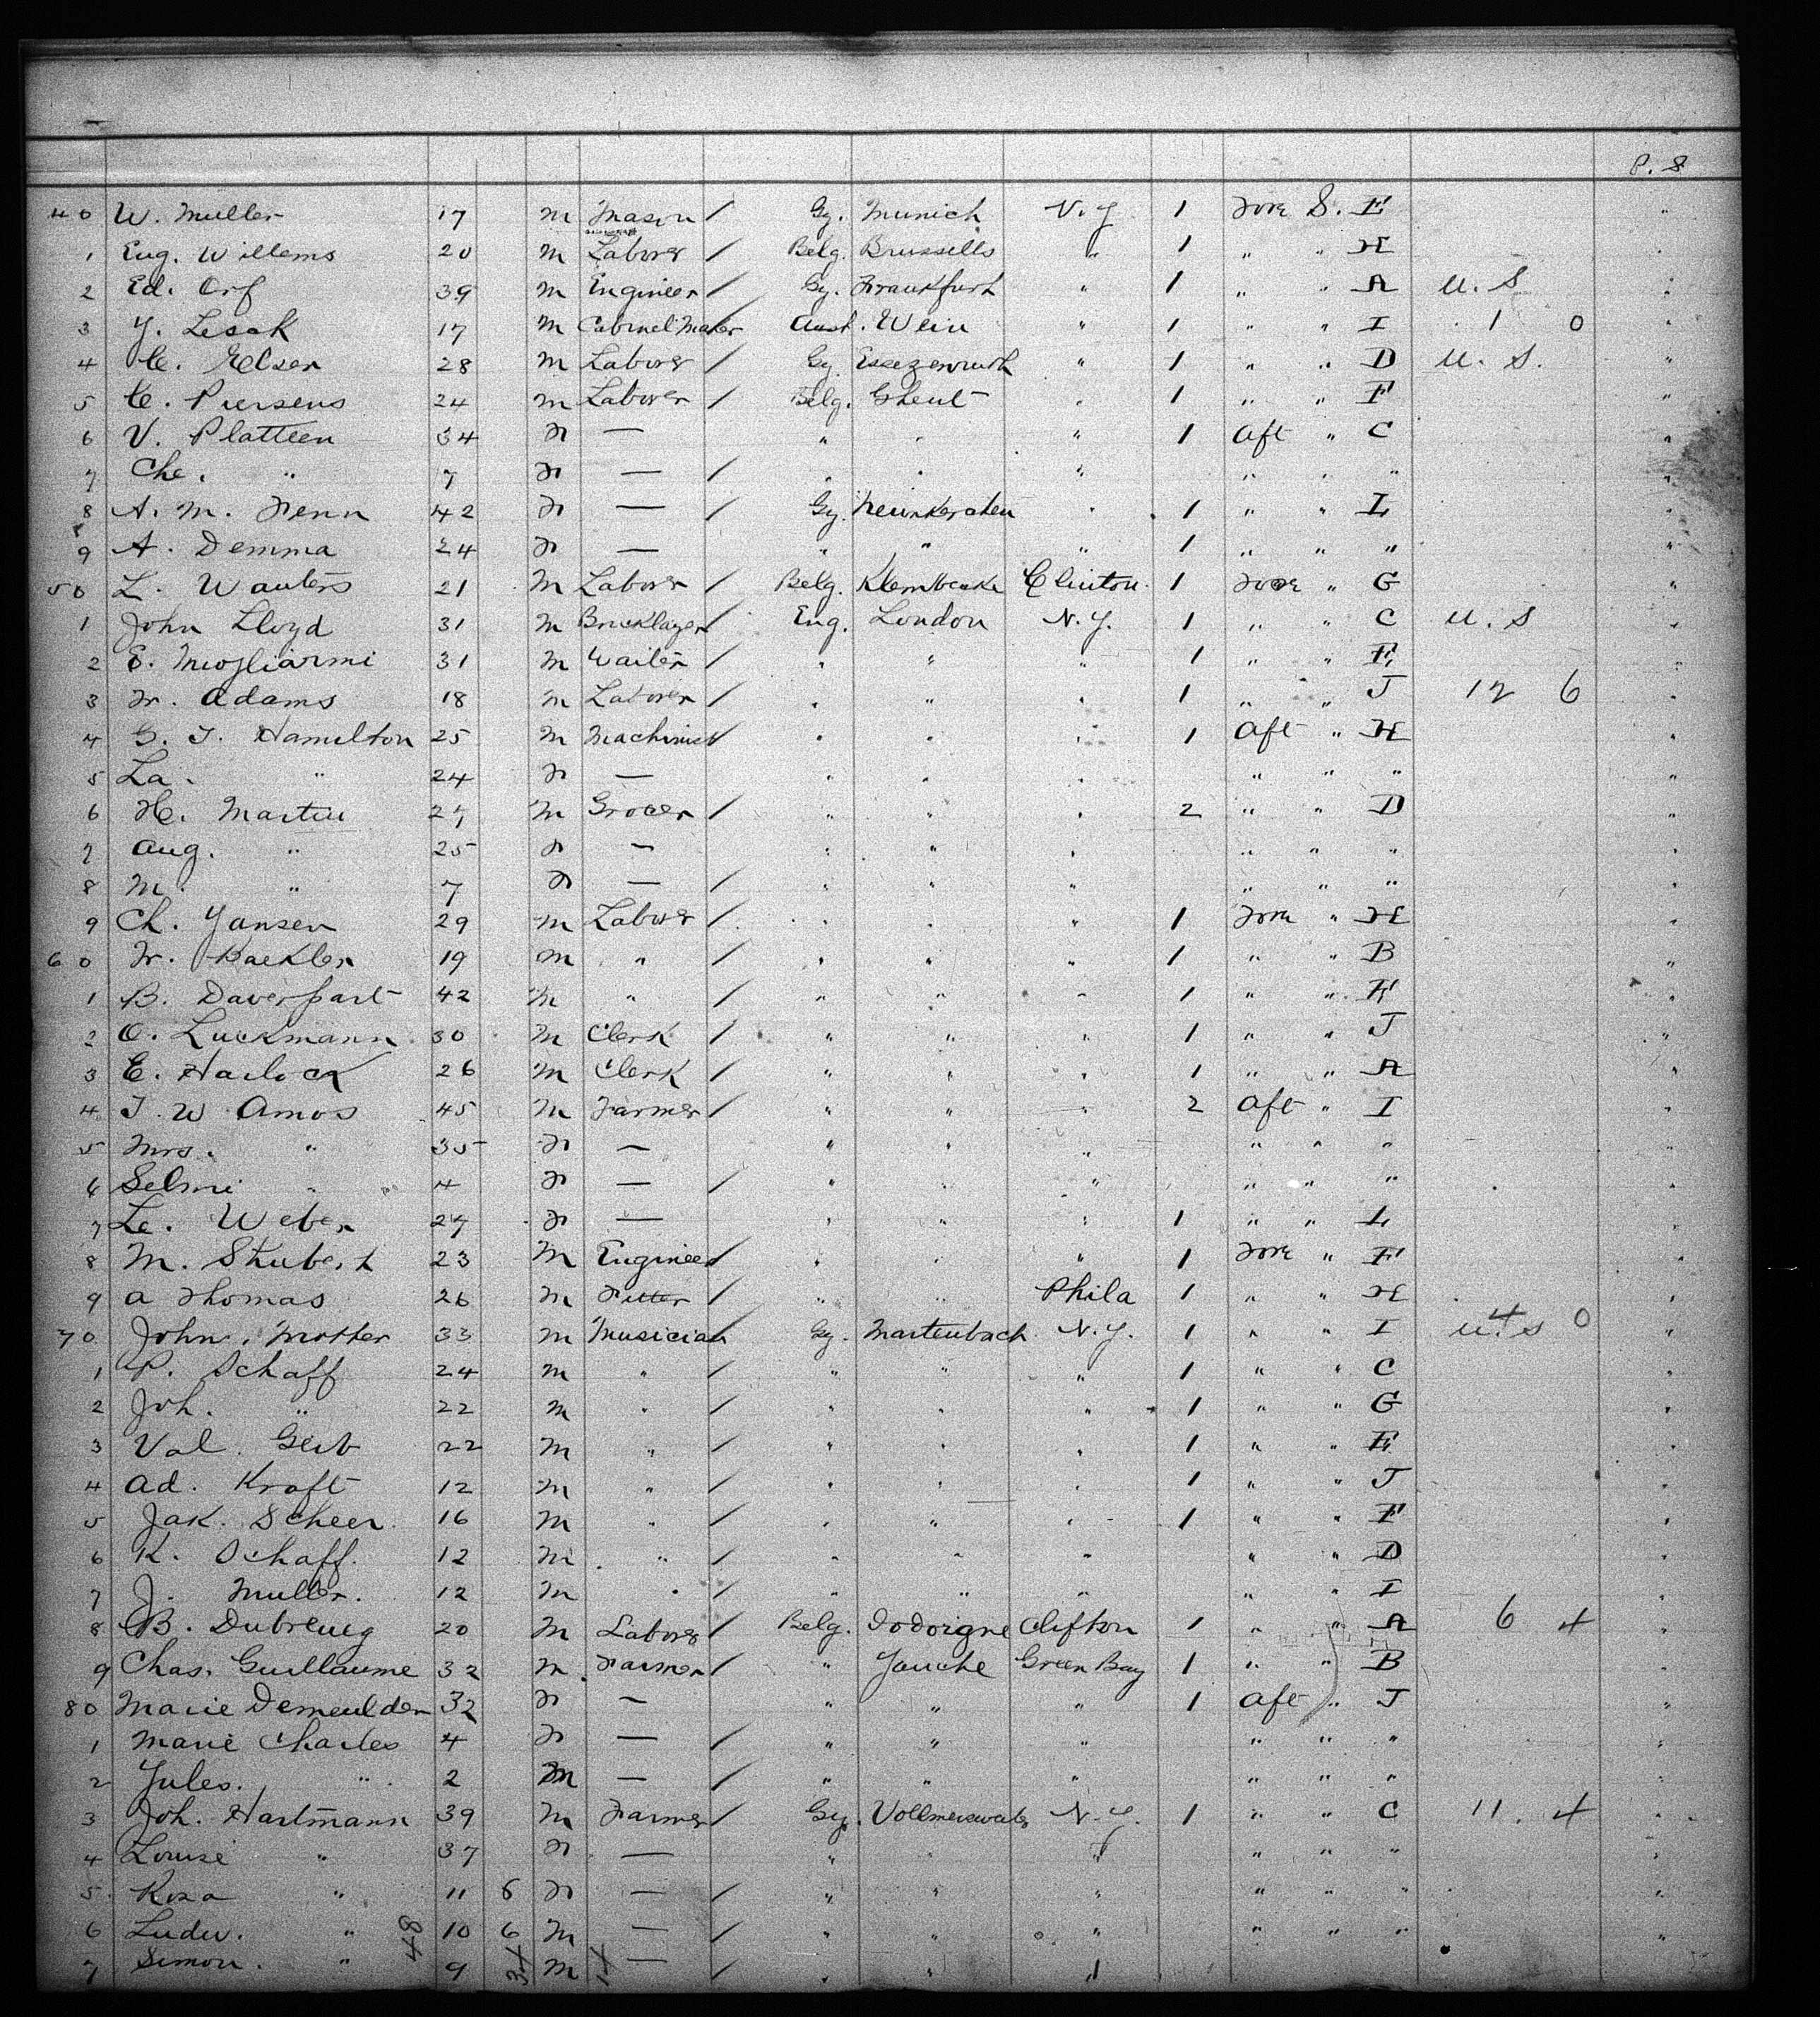 P. 8
40 W. Muller 17 m Mason / Gy. Munich N.Y. 1 Fore S. E "
1 Eug. Willems 20 m Laborer / Belg. Brussells " 1 " " H
2 Ed. Orf 39 m Engineer / Gy. Frankfurt " 1 " " A U. S "
3 J. Lesak 17 m Cabinet Maker Aust. Wein " 1 " " I 1 0 "
4 C. Elser 28 m Laborer / Gy. " 1 " " D U. S. "
5 C. Piersens 24 m Laborer / Belg. Ghent " 1 " " F "
6 V. Platteen 34 F — " " " 1 Aft " C "
7 Che. " 7 F — / " " " " " " "
8 A. M. Fenn 42 F — / Gy. " 1 " " L "
9 A. Demma 24 F — " " " 1 " " " "
50 L. Wauters 21 m Laborer / Belg. Clinton 1 Fore " G "
1 John Lloyd 31 m Bricklayer / Eng. London N.Y. 1 " " C U. S "
2 E. 31 m Waiter / " " " 1 " " E "
3 Fr. Adams 18 m Laborer / " " " 1 " " J 12 6 "
4 G. T. Hamilton 25 m Machinist " " " 1 Aft " H "
5 La. " 24 F — " " " " " " "
6 H. Martin 27 m Grocer / " " " 2 " " D "
7 Aug. " 25 F — " " " " " " "
8 M. " 7 F — / " " " " " " "
9 Ch. Jansen 29 m Laborer / " " " 1 Fore " H "
60 Fr. Kaekler 19 m " / " " " 1 " " B "
1 B. Davenpart 42 m " / " " " 1 " " E "
2 O. Luckmann 30 m Clerk / " " " 1 " " J "
3 E. Harlock 26 m Clerk / " " " 1 " " A "
4 J. W Amos 45 m Farmer / " " " 2 Aft " I "
5 Mrs. " 35 F — " " " " " " "
6 Selmi " 4 F — / " " " " " " "
7 Le. Weber 27 F — / " " " 1 " " L "
8 M. 23 m Engineer / " " " 1 Fore " F "
9 A Thomas 26 m Fitter / " " Phila 1 " " H "
70 John. Motter 33 m Musician Gy. Martenbach N.Y. 1 " " I U. S 4 0 "
1 P. Schaff 24 m " / " " " 1 " " C "
2 Joh. " 22 m " / " " " 1 " " G "
3 Val. Geib 22 m " / " " " 1 " " E "
4 Ad. Kraft 12 m " / " " " 1 " " J "
5 Jak. Scheer 16 m " / " " " 1 " " F "
6 K. Schaff. 12 m " / " " " " " D "
7 J. Muller. 12 m " / " " " " " I "
8 B. 20 m Laborer / Belg. Dodoigne Clifton 1 " " A 6 4 "
9 Chas. Guillaume 32 m Farmer / " Jauche Green Bay 1 " " B "
80 Marie Demeulder 32 F — " " " 1 Aft " J "
1 Marie Charles 4 F — / " " " " " " "
2 Jules. " 2 m — / " " " " " " "
3 Joh. Hartmann 39 m Farmer / Gy. N.Y. 1 " " C 11. 4 "
4 Louise " 37 F — " " " " " " "
5 Rosa " 11 6 F — / " " " " " " "
6 Ludw. " 10 6 m — / " " " " " " "
7 Simon. " 9 m — / " " "
48 34 14